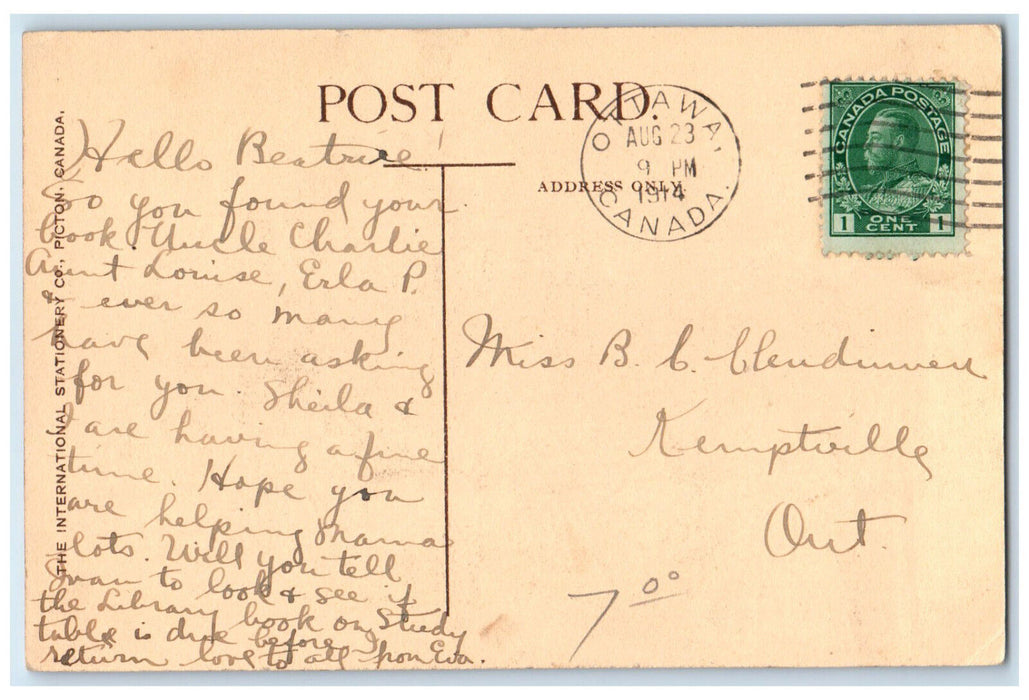 POST CARD.
ADDRESS ONLY.
OTTAWA,
AUG 23
9 PM
1914
CANADA.
CANADA POSTAGE
1 ONE CENT 1
THE INTERNATIONAL STATIONERY CO., PICTON, CANADA.
Hello Beatrice!
So you found your
book. Uncle Charlie
Aunt Louise, Erla P.
& ever so many
have been asking
for you. Sheila &
I are having a fine
time. Hope you
are helping Mama
lots. Will you tell
Ivan to look & see if
the Library book on Study
table is due before I
return love to all from Eva.
Miss B. C. Clendinnen
Kemptville
Ont.
7 00